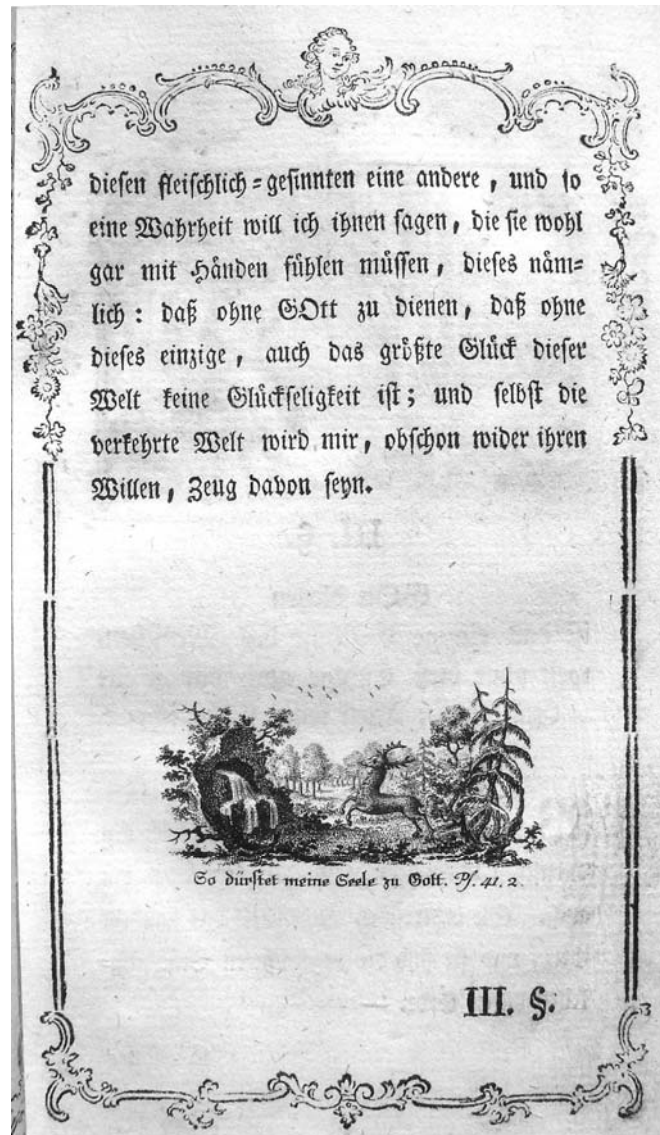 diesen fleischlich-gesinnten eine andere, und so
eine Wahrheit will ich ihnen sagen, die sie wohl
gar mit Händen fühlen müssen, dieses näm-
lich: daß ohne GOtt zu dienen, daß ohne
dieses einzige, auch das größte Glück dieser
Welt keine Glückseligkeit ist; und selbst die
verkehrte Welt wird mir, obschon wider ihren
Willen, Zeug davon seyn.
So dürstet meine Seele zu Gott. Ps. 41. 2.
III. §.